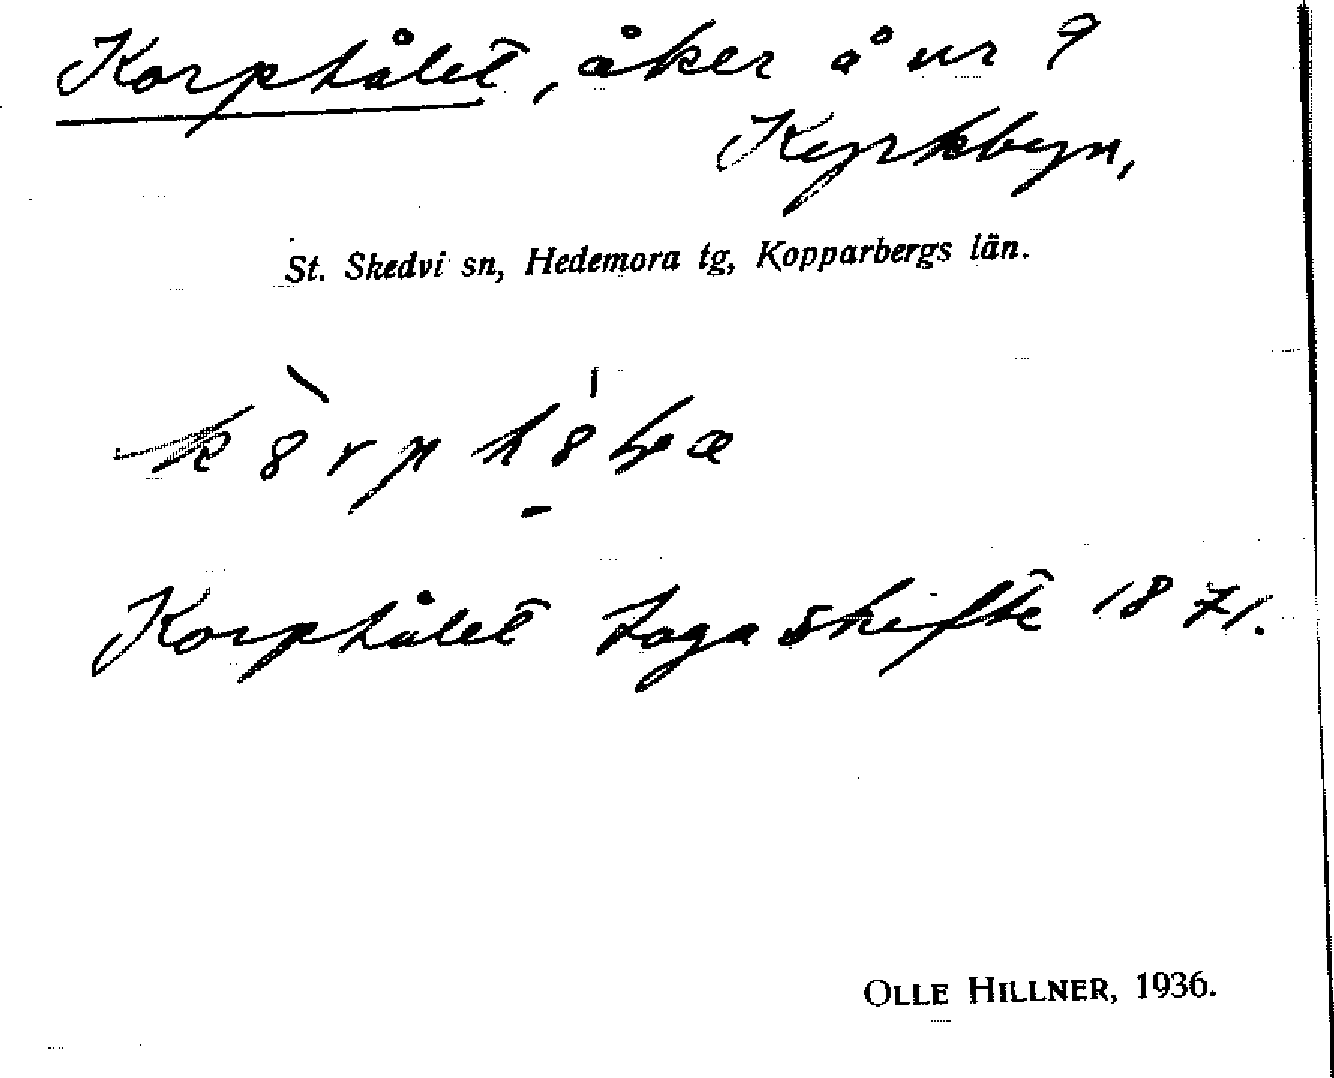 Korphålet, åker å nr 9
Kyrkbyn,
St. Skedvi sn, Hedemora tg, Kopparbergs län.
Korphålet laga skifte 1871.
OLLE HILLNER, 1936.